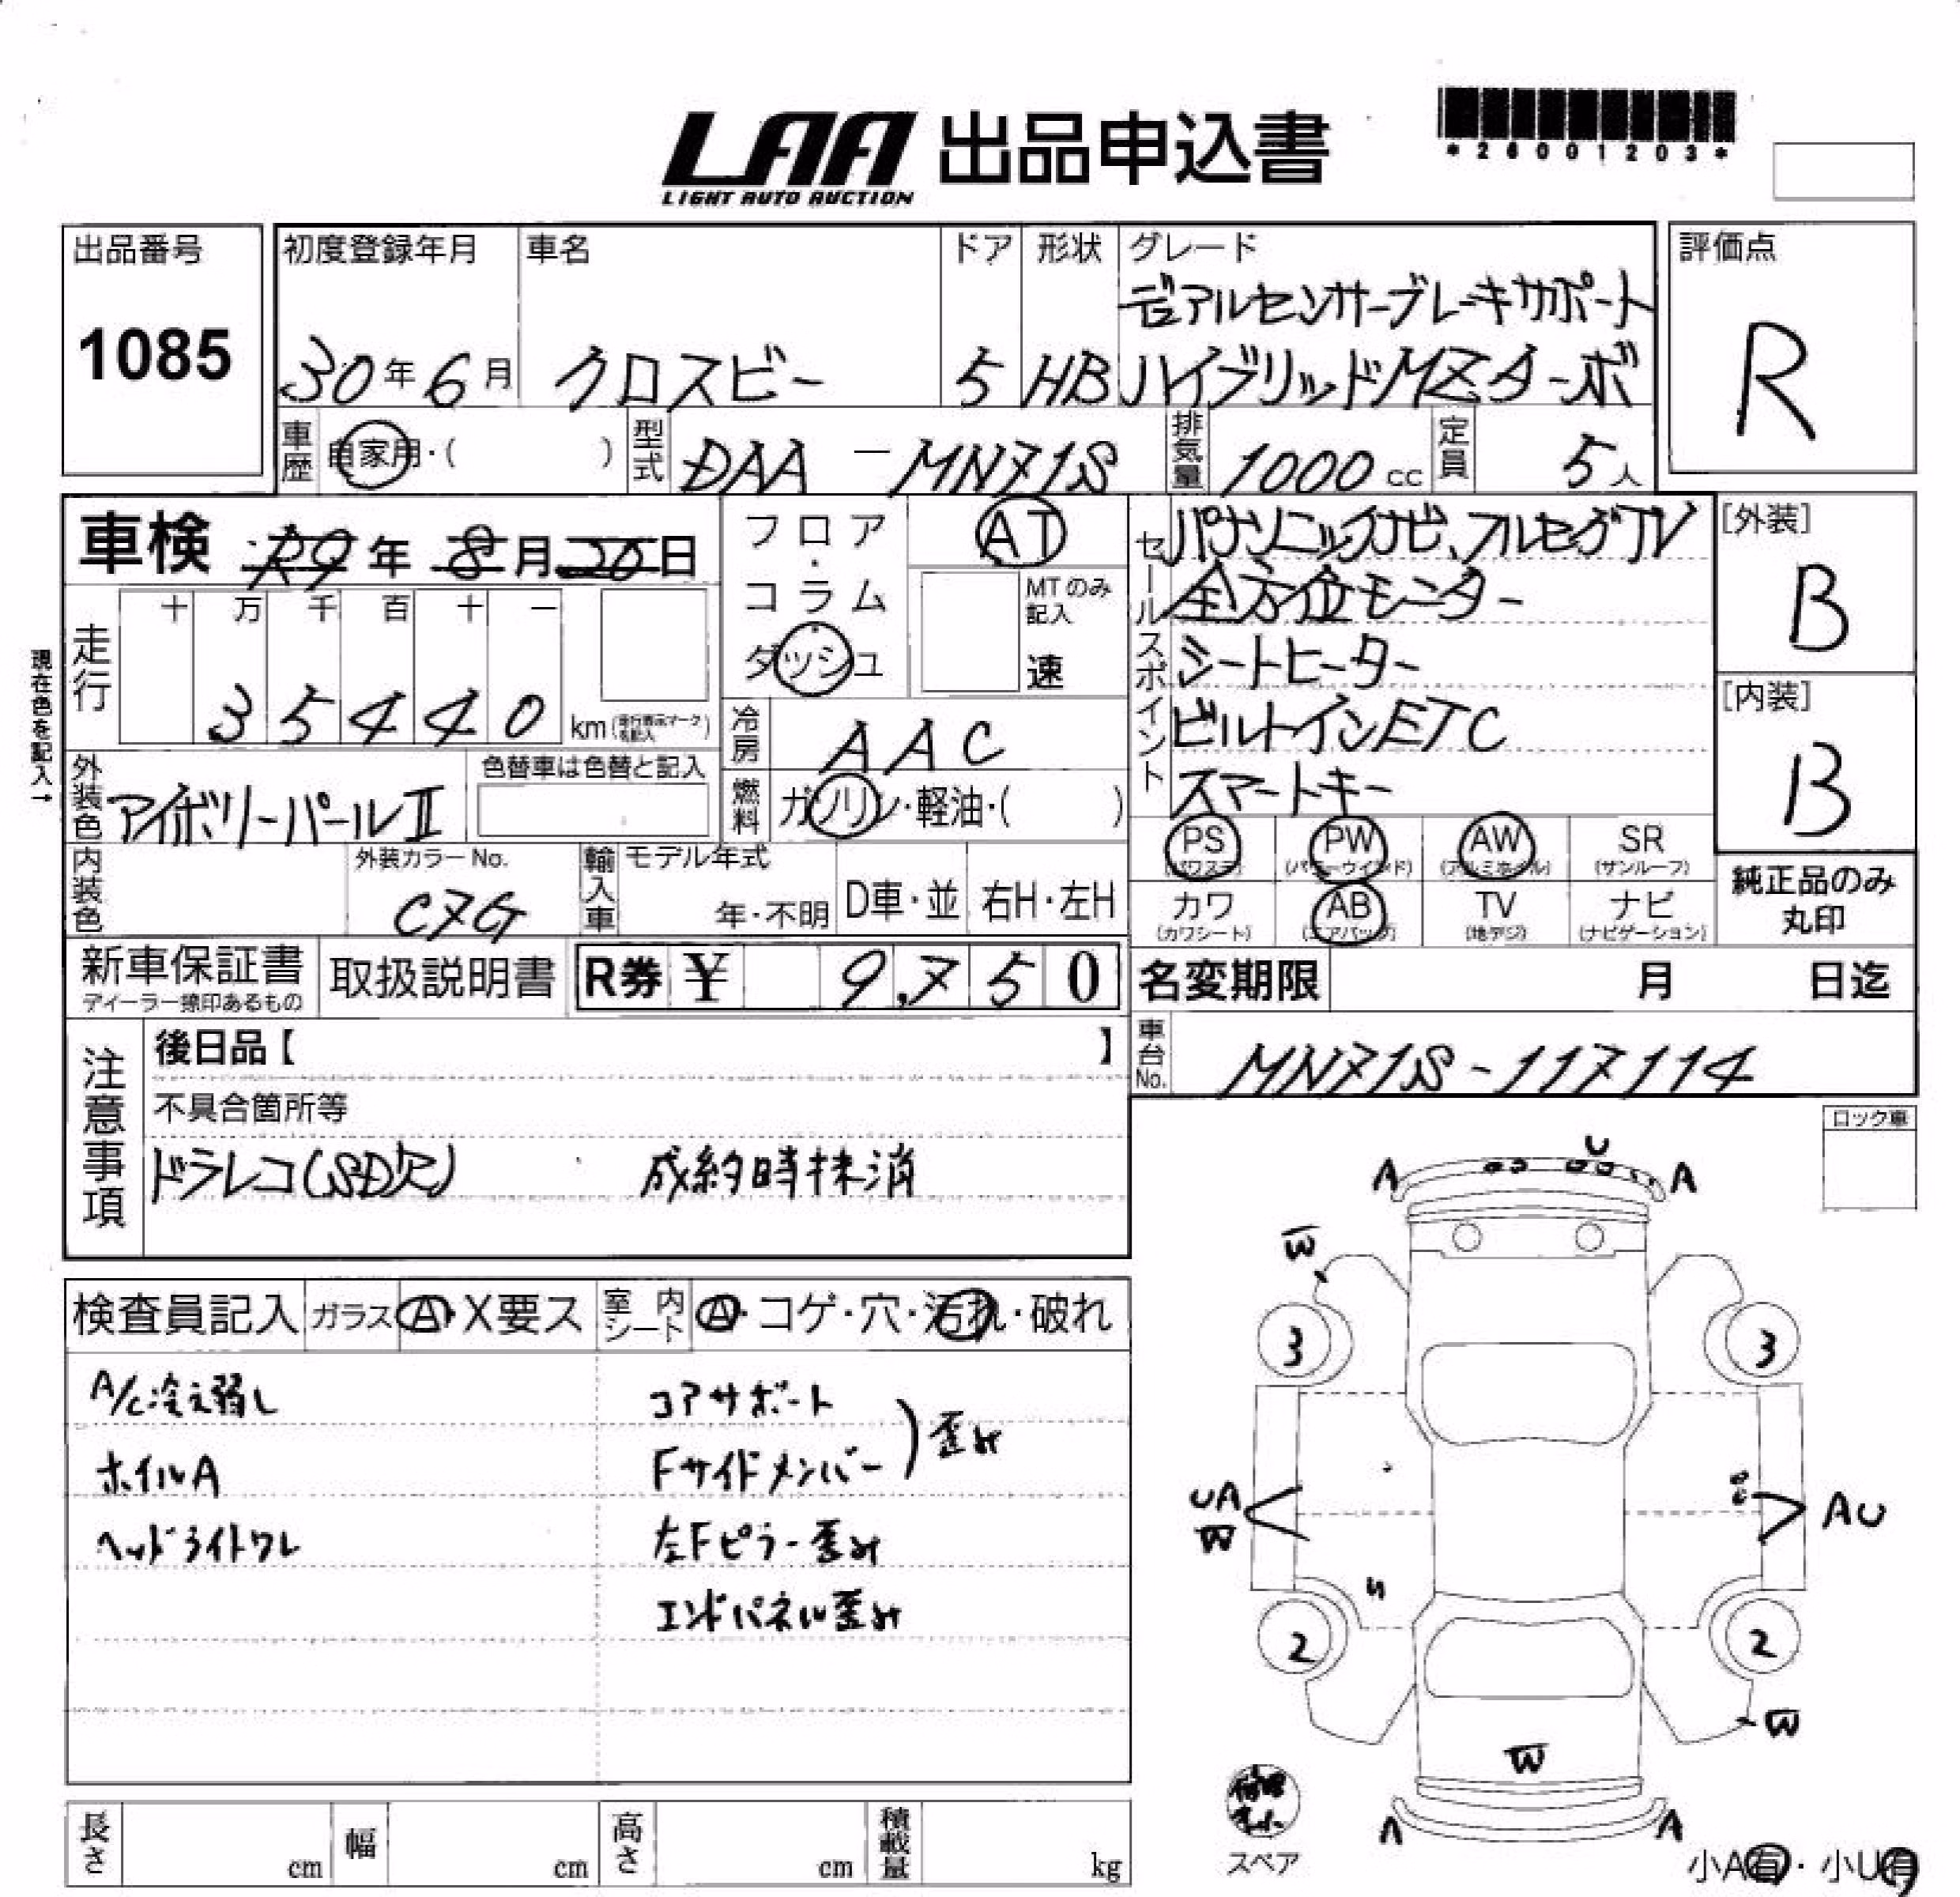 LAA 出品申込書
LIGHT AUTO AUCTION
*26001203*
出品番号
1085
初度登録年月
30年6月
車名
クロスビー
ドア
5
形状
HB
グレード
デュアルセンサーブレーキサポート
ハイブリッドMZターボ
評価点
R
車歴
自家用・( )
型式
DAA - MN71S
排気量
1000cc
定員
5人
車検 R9年8月20日
現在色を記入→
走行
十 万 千 百 十 一
3 5 4 4 0 km
フロア・コラム・ダッシュ
AT
MTのみ記入
速
冷房
AAC
燃料
ガソリン・軽油・( )
外装色
アイボリーパールⅡ
色替車は色替と記入
内装色
外装カラーNo.
C7G
輸入車
モデル年式
年・不明
D車・並
右H・左H
セールスポイント
パナソニックナビ、フルセグTV
全方位モニター
シートヒーター
ビルトインETC
スマートキー
[外装]
B
[内装]
B
PS (パワステ)
PW (パワーウインド)
AW (アルミホイル)
SR (サンルーフ)
カワ (カワシート)
AB (エアバッグ)
TV (地デジ)
ナビ (ナビゲーション)
純正品のみ丸印
新車保証書
ディーラー捺印あるもの
取扱説明書
R券 ¥ 9,750
名変期限 月 日迄
車台No.
MN71S-117114
注意事項
後日品【 】
不具合箇所等
ドラレコ(SD欠) 成約時抹消
ロック車
検査員記入
ガラス A・X要ス
室内シート A・コゲ・穴・汚れ・破れ
A/C冷え弱し
ホイルA
ヘッドライトワレ
コアサポート
Fサイドメンバー
)歪み
左Fピラー歪み
エンドパネル歪み
U
A A
W
3 3
UA
W
AU
2 2
W
W
A A
修理キット
スペア
小A有・小U有
長さ cm
幅 cm
高さ cm
積載量 kg